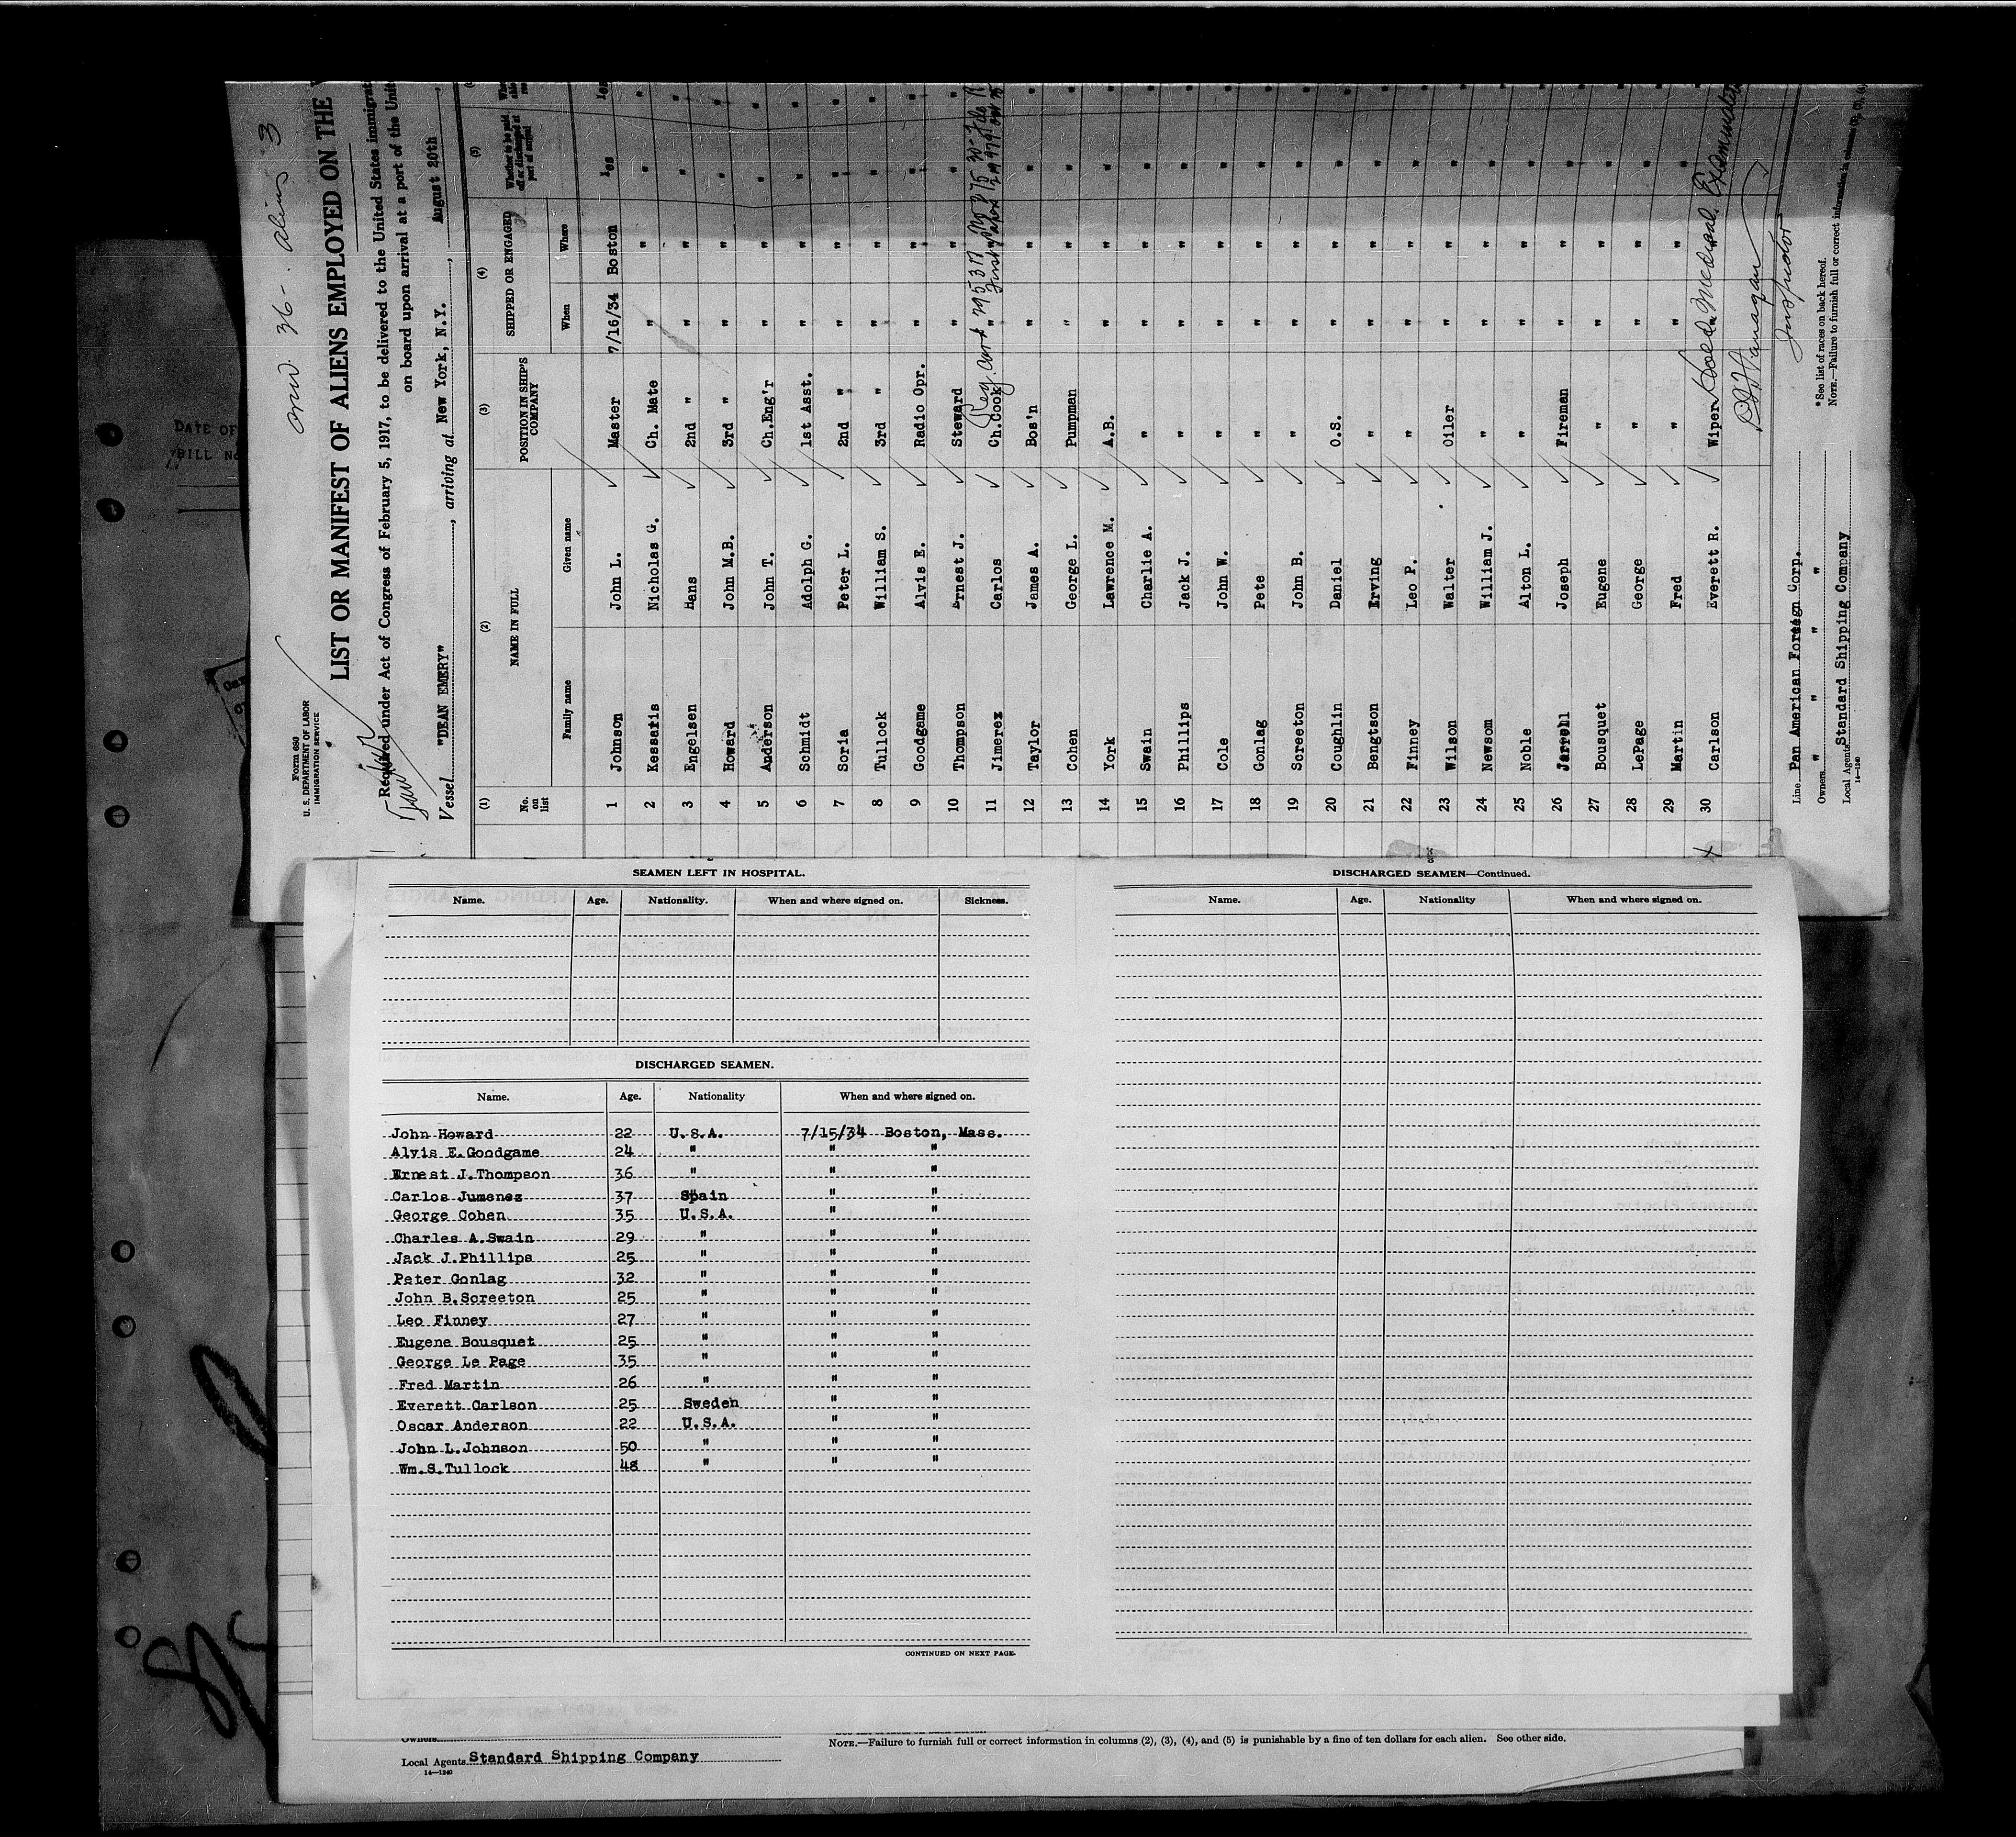 and 36 - aliens 3
Form 680
U. S. DEPARTMENT OF LABOR
IMMIGRATION SERVICE
LIST OR MANIFEST OF ALIENS EMPLOYED ON THE
Required under Act of Congress of February 5, 1917, to be delivered to the United States immigrat
on board upon arrival at a port of the Unit
Vessel "DEAN EMERY", arriving at New York, N.Y., August 20th,
(1) (2) (3) (4) (5)
No. on list NAME IN FULL POSITION IN SHIP'S COMPANY SHIPPED OR ENGAGED Whether to be paid off or discharged at port of arrival
Family name Given name When Where
1 Johnson John L. Master 7/16/34 Boston
2 Kessaris Nicholas G. Ch. Mate " " "
3 Engelsen Hans 2nd " " " "
4 Howard John M.B. 3rd " " " "
5 Anderson John T. Ch.Eng'r " " "
6 Schmidt Adolph G. 1st Asst. " " "
7 Soria Peter L. 2nd " " " "
8 Tullock William S. 3rd " " " "
9 Goodgame Alvis E. Radio Opr. " " "
10 Thompson Ernest J. Steward " " "
11 Jimerez Carlos Ch.Cook "
Reg. Card
12 Taylor James A. Bos'n " " "
13 Cohen George L. Pumpman " " "
14 York Lawrence M. A.B. " " "
15 Swain Charlie A. " " " "
16 Phillips Jack J. " " " "
17 Cole John W. " " " "
18 Gonlag Pete " " " "
19 Screeton John B. " " " "
20 Coughlin Daniel O.S. " " "
21 Bengtson Erving " " " "
22 Finney Leo P. " " " "
23 Wilson Walter Oiler " " "
24 Newsom William J. " " " "
25 Noble Alton L. " " " "
26 Jarrell Joseph Fireman " " "
27 Bousquet Eugene " " " "
28 LePage George " " " "
29 Martin Fred " " " "
30 Carlson Everett R. Wiper
Medical Examination
Inspector
Line Pan American Foreign Corp.
Owners " " " "
Local Agents Standard Shipping Company
14—1240
* See list of races on back hereof.
NOTE.—Failure to furnish full or correct information in columns (2), (3), (4),
DATE OF
BILL No
SEAMEN LEFT IN HOSPITAL.
Name. Age. Nationality. When and where signed on. Sickness.
DISCHARGED SEAMEN.
Name. Age. Nationality When and where signed on.
John Howard 22 U.S.A. 7/15/34 Boston, Mass.
Alvis E.Goodgame 24 " " "
Ernest J.Thompson 36 " " "
Carlos Jumenez 37 Spain " "
George Cohen 35 U.S.A. " "
Charles A.Swain 29 " " "
Jack J.Phillips 25 " " "
Peter Gonlag 32 " " "
John B.Screeton 25 " " "
Leo Finney 27 " " "
Eugene Bousquet 25 " " "
George Le Page 35 " " "
Fred Martin 26 " " "
Everett Carlson 25 Sweden " "
Oscar Anderson 22 U.S.A. " "
John L.Johnson 50 " " "
Wm.S.Tullock 48 " " "
CONTINUED ON NEXT PAGE.
DISCHARGED SEAMEN—Continued.
Name. Age. Nationality When and where signed on.
Owners
Local Agents Standard Shipping Company
14—1240
NOTE.—Failure to furnish full or correct information in columns (2), (3), (4), and (5) is punishable by a fine of ten dollars for each alien. See other side.